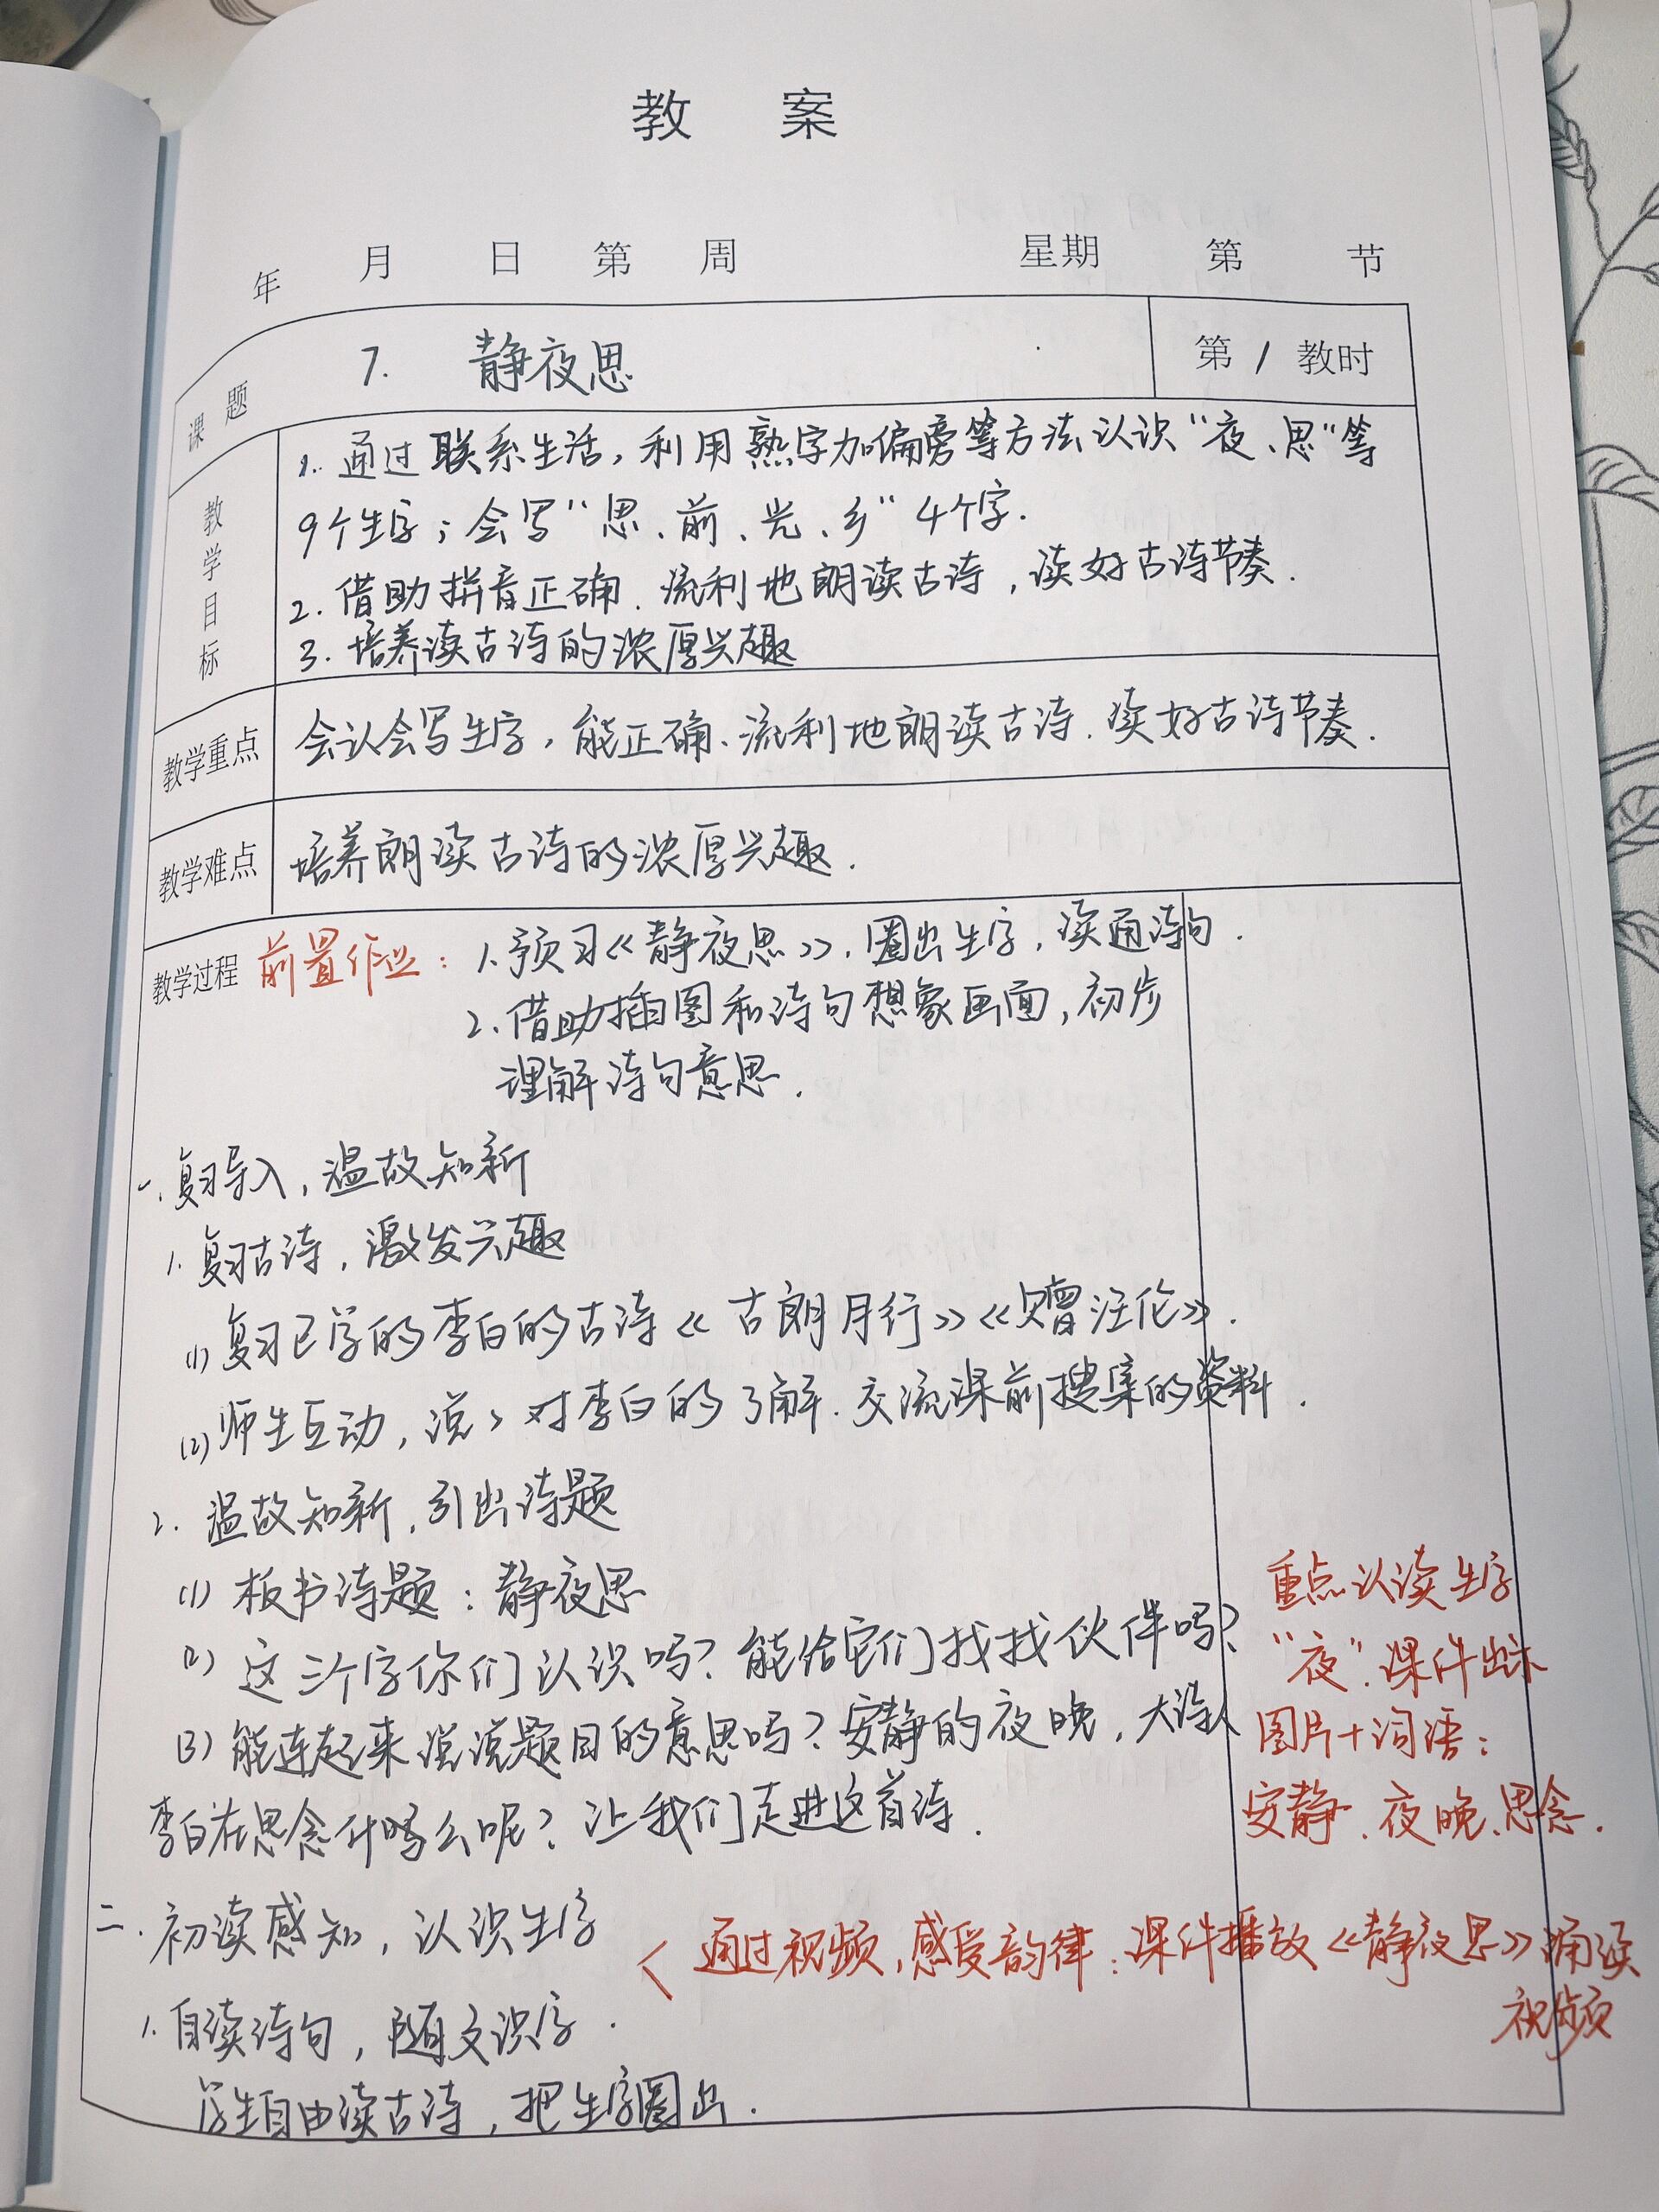 教 案
年 月 日 第 周 星期 第 节
课题 7. 静夜思 第 1 教时
教学目标 1. 通过联系生活，利用熟字加偏旁等方法认识“夜、思”等
9个生字；会写“思、前、光、乡”4个字.
2. 借助拼音正确、流利地朗读古诗，读好古诗节奏.
3. 培养读古诗的浓厚兴趣
教学重点 会认会写生字，能正确、流利地朗读古诗、读好古诗节奏.
教学难点 培养朗读古诗的浓厚兴趣.
教学过程 前置作业：1. 预习《静夜思》，圈出生字，读通诗句.
2. 借助插图和诗句想象画面，初步
理解诗句意思.
一. 复习导入，温故知新
1. 复习古诗，激发兴趣
(1) 复习已学的李白的古诗《古朗月行》《赠汪伦》.
(2) 师生互动，说说对李白的了解.交流课前搜集的资料.
2. 温故知新，引出诗题
(1) 板书诗题：静夜思
(2) 这三个字你们认识吗？能给它们找找伙伴吗？
(3) 能连起来说说题目的意思吗？安静的夜晚，大诗人
李白在思念什么呢？让我们走进这首诗.
重点认读生字
“夜”.课件出示
图片+词语：
安静、夜晚、思念.
二. 初读感知，认识生字
< 通过视频，感受韵律：课件播放《静夜思》诵读
视频
1. 自读诗句，随文识字.
学生自由读古诗，把生字圈出.